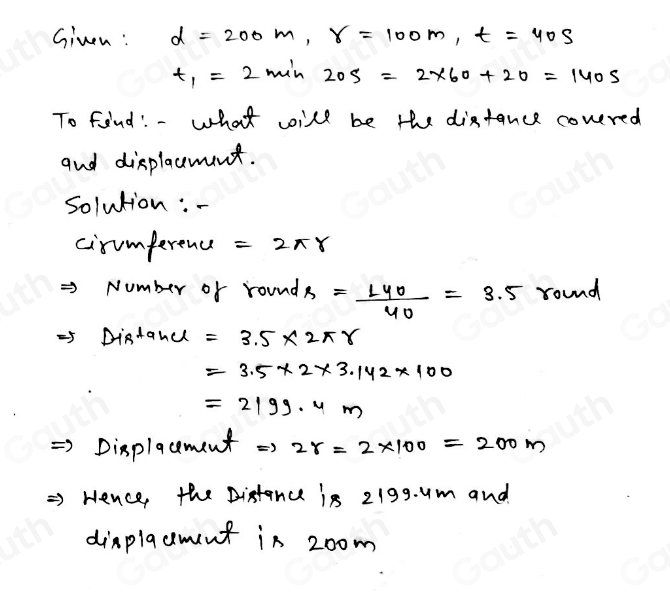 Given : d = 200 m, r = 100 m, t = 40 s
t₁ = 2 min 20 s = 2×60 + 20 = 140 s
To Find :- what will be the distance covered
and displacement.
Solution :-
cirumference = 2πr
⇒ Number of rounds = 140/40 = 3.5 round
⇒ Distance = 3.5 × 2πr
= 3.5 × 2 × 3.142 × 100
= 2199.4 m
⇒ Displacement ⇒ 2r = 2×100 = 200 m
⇒ Hence, the Distance is 2199.4m and
displacement is 200m